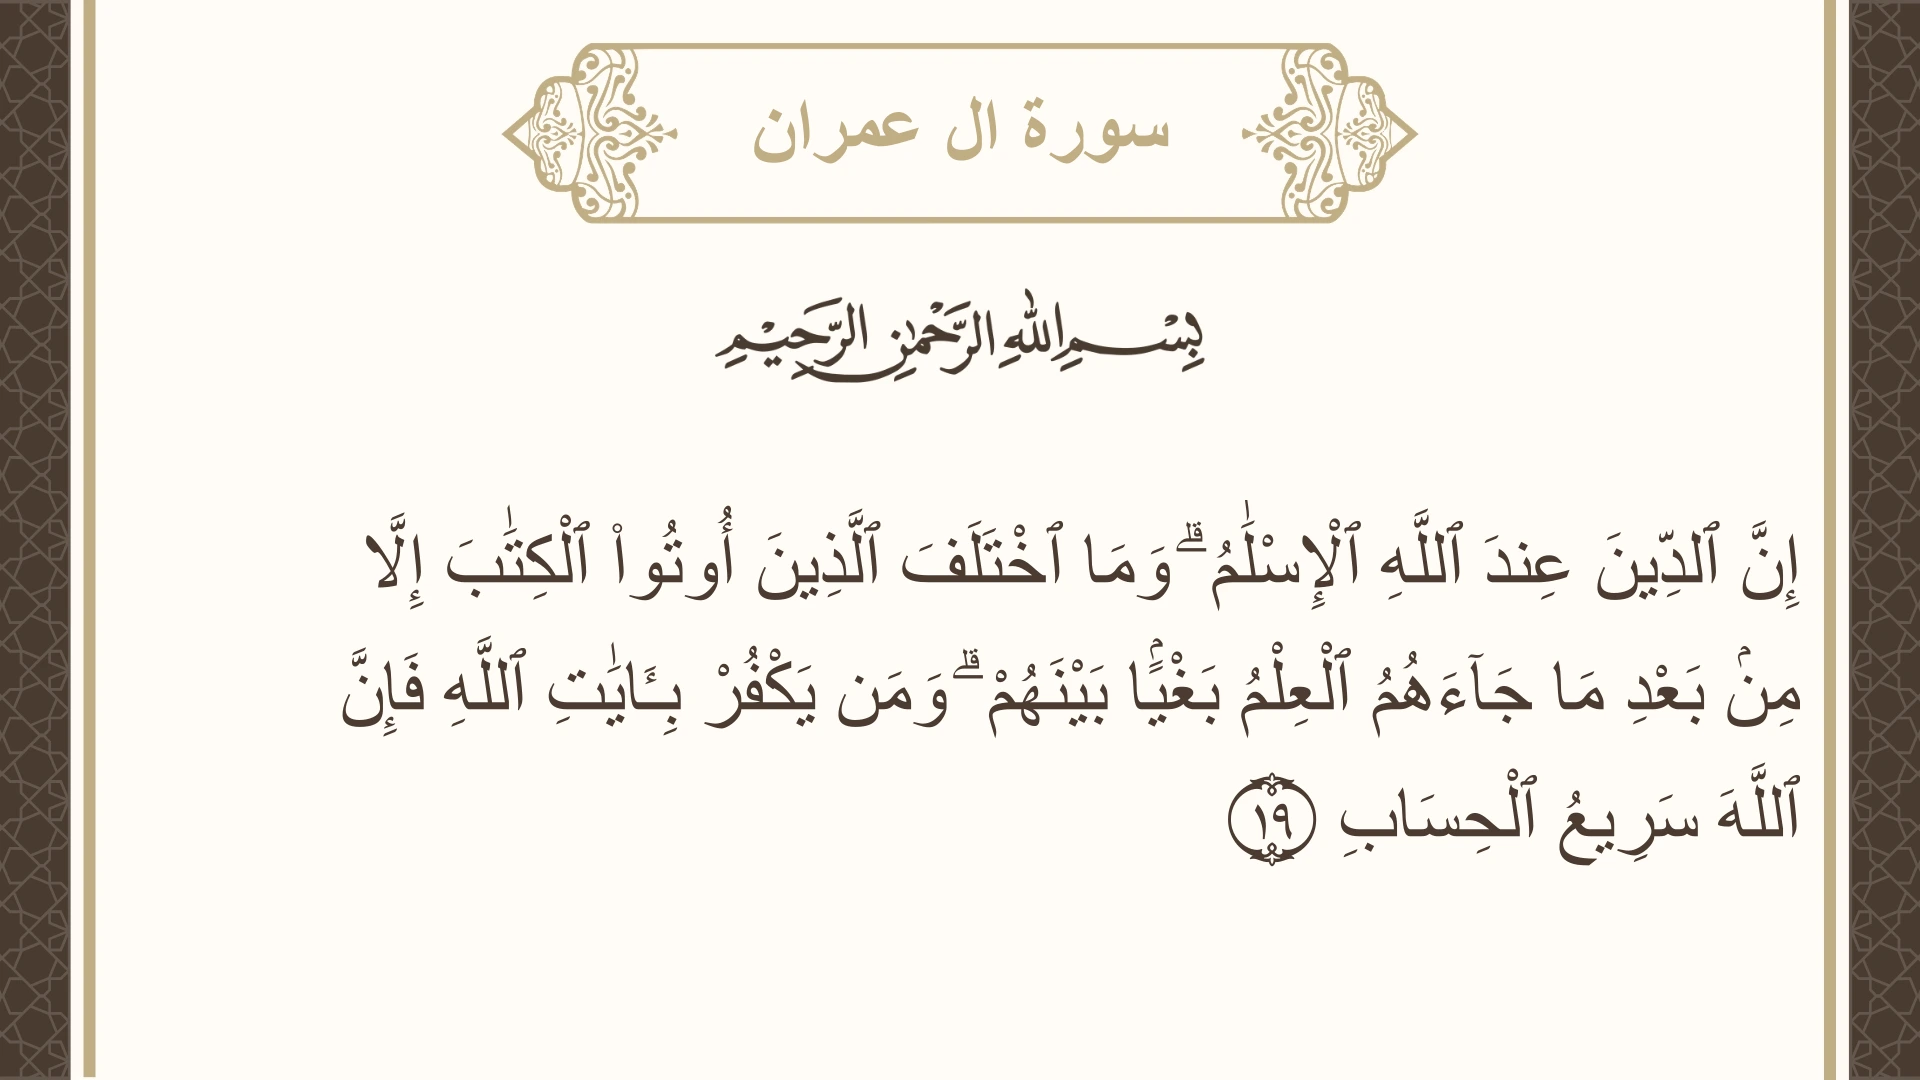 سورة ال عمران
بِسْمِ اللهِ الرَّحْمٰنِ الرَّحِيْمِ
إِنَّ ٱلدِّينَ عِندَ ٱللَّهِ ٱلْإِسْلَٰمُ ۗ وَمَا ٱخْتَلَفَ ٱلَّذِينَ أُوتُوا۟ ٱلْكِتَٰبَ إِلَّا
مِنۢ بَعْدِ مَا جَآءَهُمُ ٱلْعِلْمُ بَغْيًۢا بَيْنَهُمْ ۗ وَمَن يَكْفُرْ بِـَٔايَٰتِ ٱللَّهِ فَإِنَّ
ٱللَّهَ سَرِيعُ ٱلْحِسَابِ ١٩